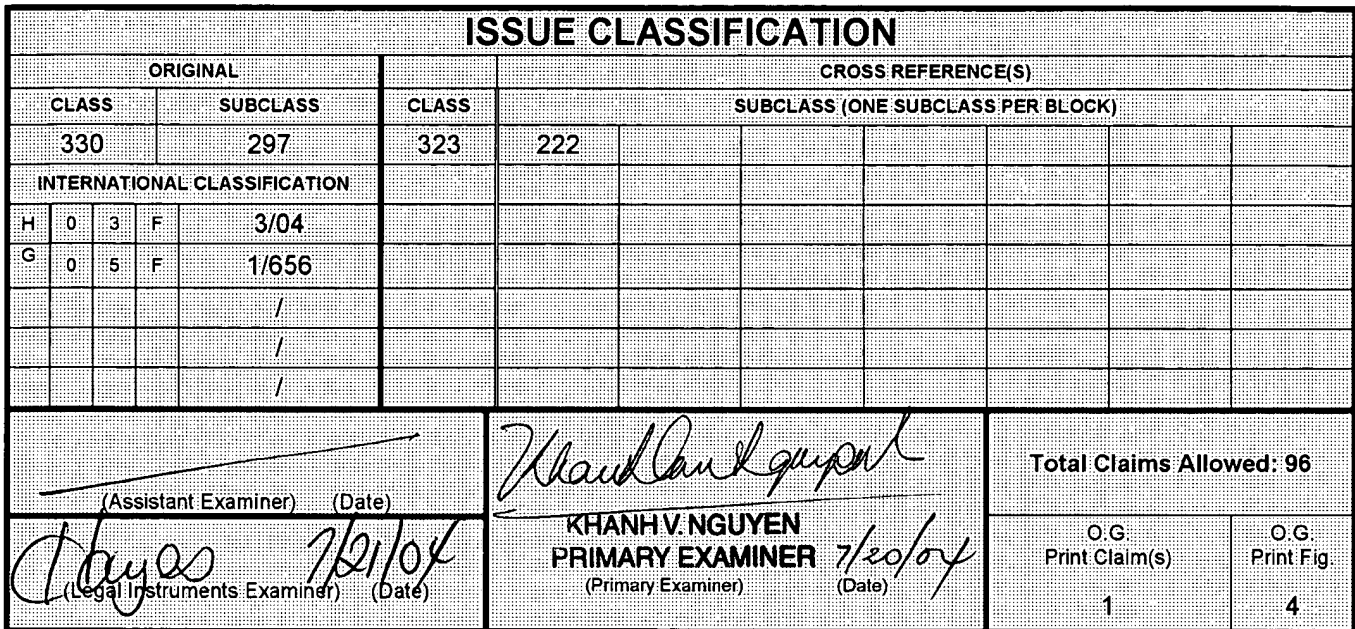 ISSUE CLASSIFICATION
ORIGINAL CROSS REFERENCE(S)
CLASS SUBCLASS CLASS SUBCLASS (ONE SUBCLASS PER BLOCK)
330 297 323 222
INTERNATIONAL CLASSIFICATION
H 0 3 F 3/04
G 0 5 F 1/656
/
/
/
(Assistant Examiner) (Date)
Hayes 7/21/04
(Legal Instruments Examiner) (Date)
Khanh Van Nguyen
KHANH V. NGUYEN
PRIMARY EXAMINER 7/20/04
(Primary Examiner) (Date)
Total Claims Allowed: 96
O.G. Print Claim(s)
1
O.G. Print Fig.
4